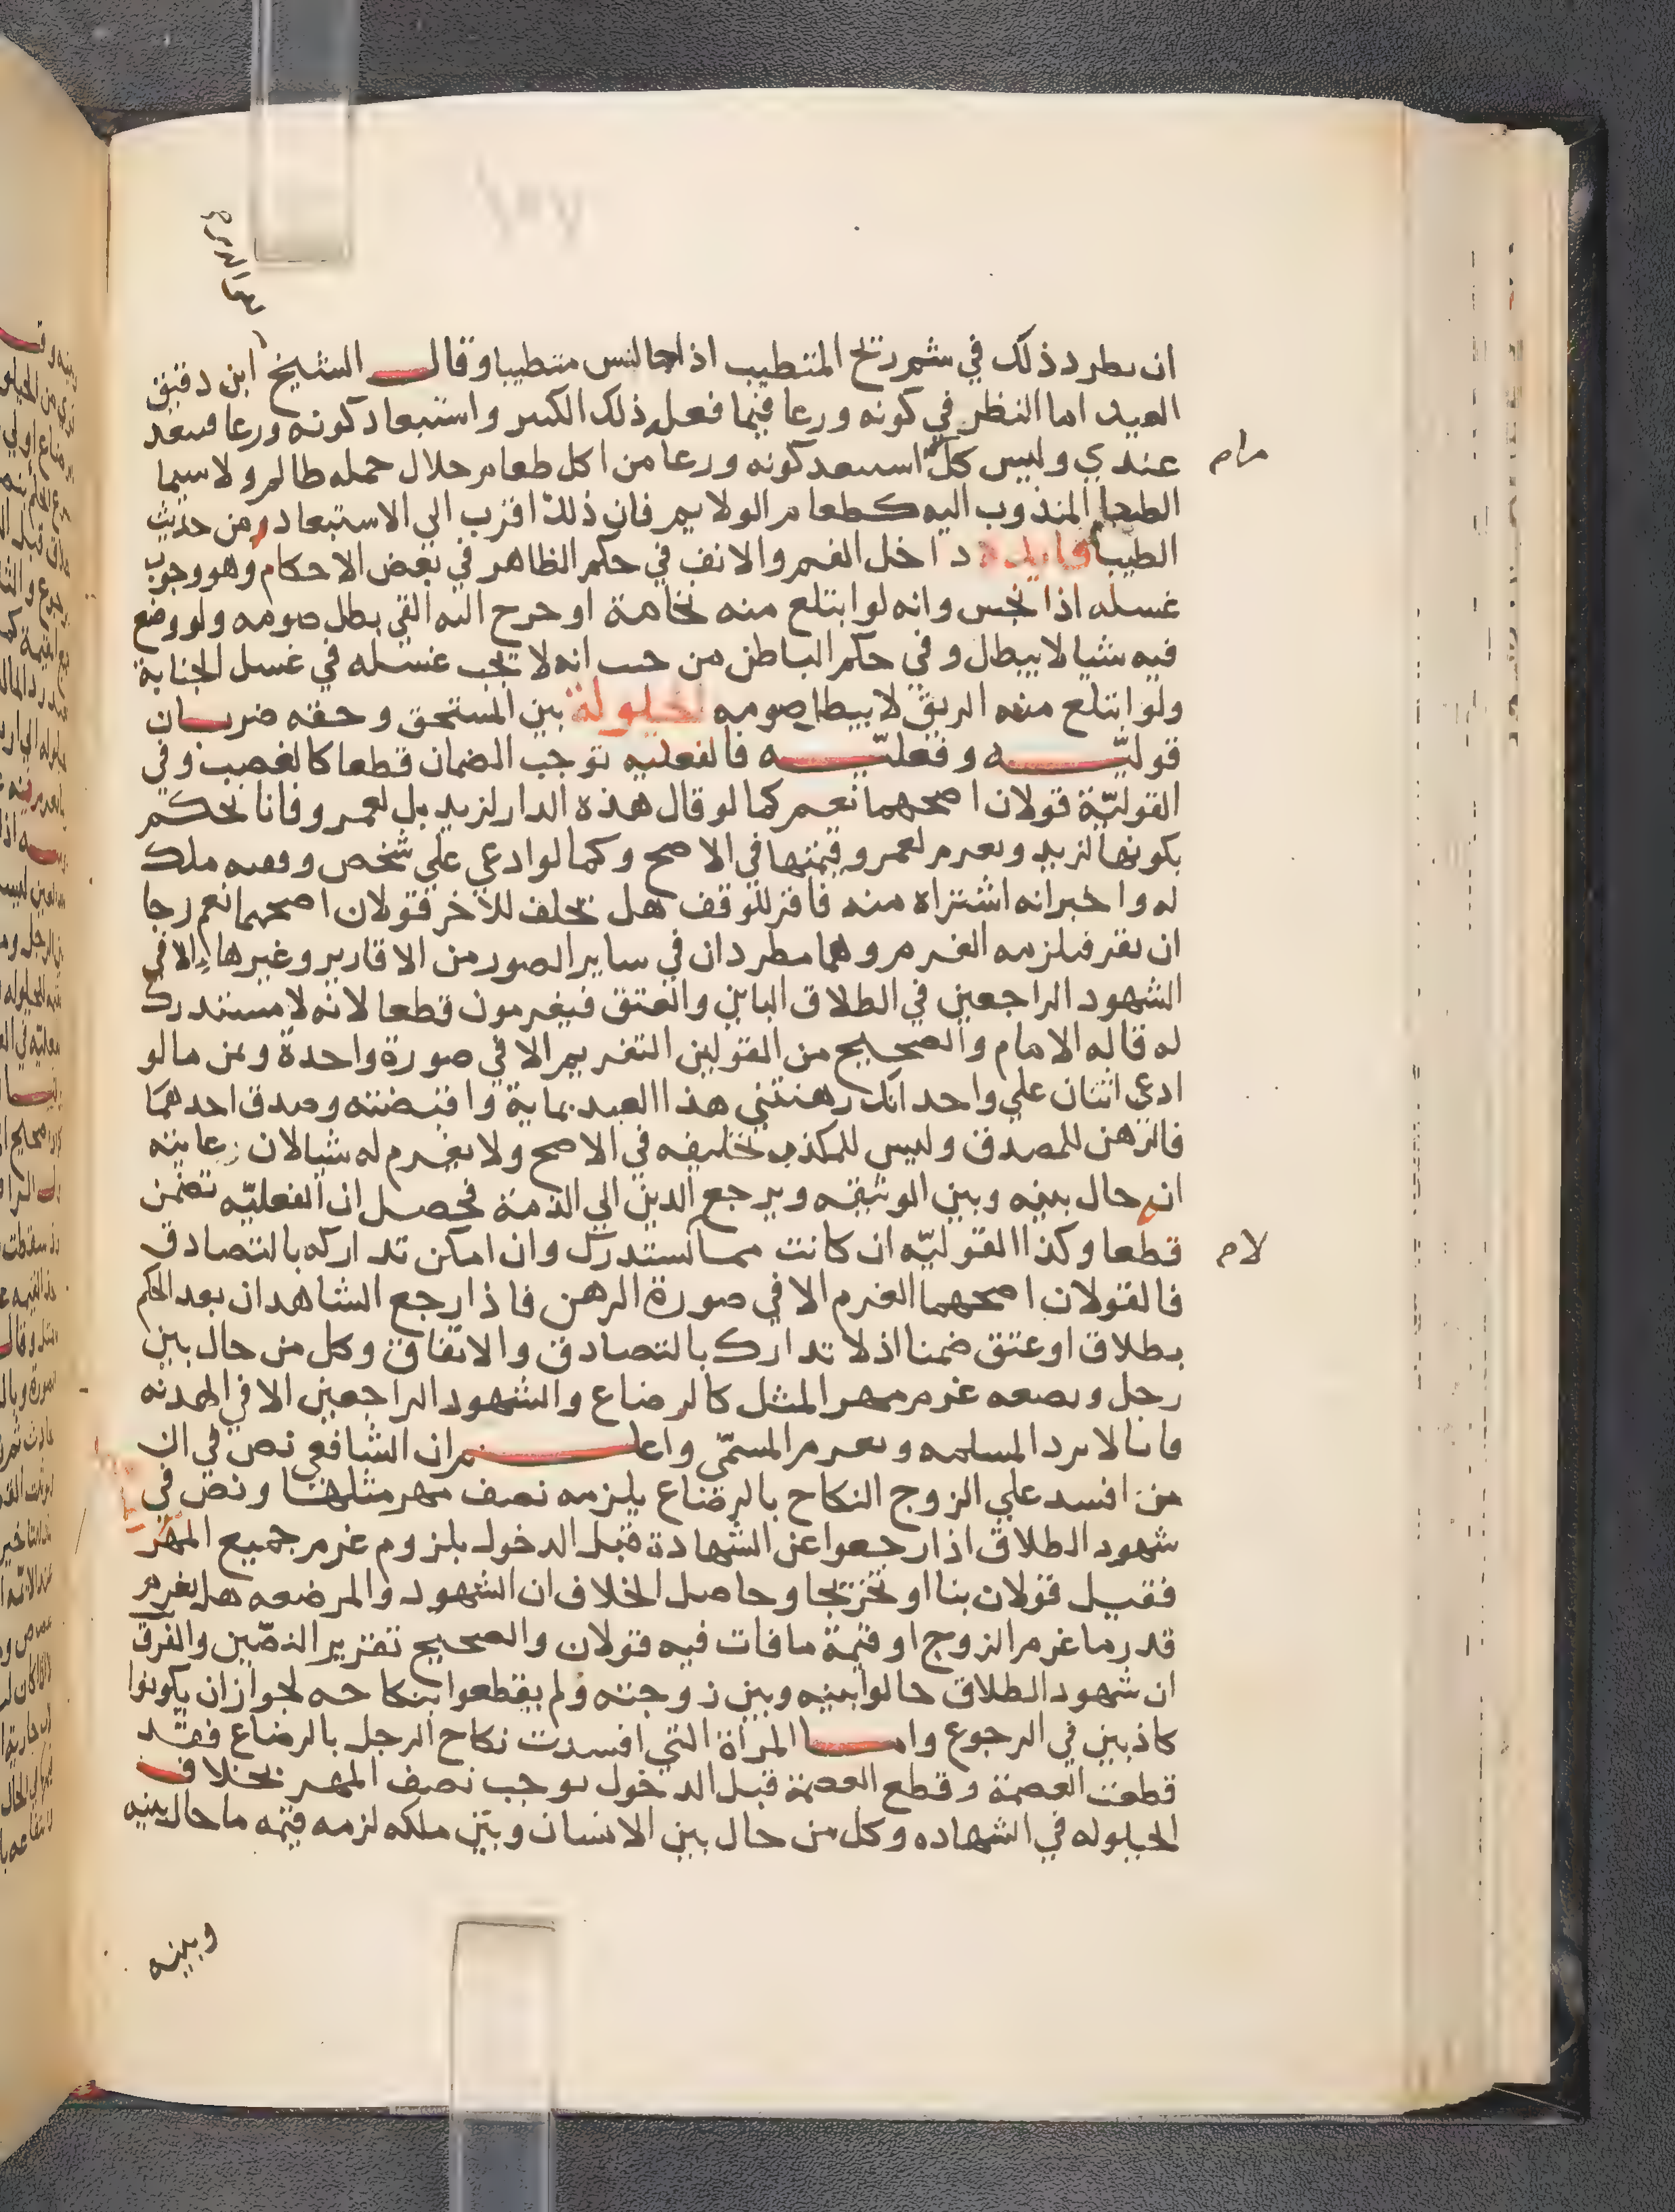 ان يطرد ذلك في شم ريح المتطيب اذا جالس متطيبا وقال الشيخ ابن دقيق
العيد اما النظر في كونه ورعا فيما فعل ذلك الكبير واستبعاد كونه ورعا فبعيد
عندي وليس كل استبعد كونه ورعا من اكل طعام حلال حمله ظالم ولا سيما
الطعام المندوب اليه كطعام الولايم فان ذلك اقرب الى الاستبعاد من حديث
الطيب فايدة داخل الفم والانف في حكم الظاهر في بعض الاحكام وهو وجوب
غسله اذا نجس وانه لو ابتلع منه نخامة او خرج اليه القي بطل صومه ولو وضع
فيه شيا لا يبطل وفي حكم الباطن من حيث انه لا يجب غسله في غسل الجنابة
ولو ابتلع منه الريق لا يبطل صومه الحيلولة بين المستحق وحقه ضربان
قوليّه وفعليّه فالفعليه توجب الضمان قطعا كالغصب وفي
القوليّة قولان اصحهما نعم كما لو قال هذه الدار لزيد بل لعمرو فانا نحكم
بكونها لزيد ويغرم لعمرو قيمتها في الاصح وكما لو ادعي علي شخص وقف ملك
له واخبر انه اشتراه منه فاقر للوقف هل يحلف للاخر قولان اصحهما نعم رجا
ان يقر فيلزمه الغرم وهما مطردان في ساير الصور من الاقارير وغيرها الا في
الشهود الراجعين في الطلاق الباين والعتق فيغرمون قطعا لانه لا مستدرك
له قاله الامام والصحيح من القولين التغريم الا في صورة واحدة وهي ما لو
ادعي اثنان علي واحد انك رهنتني هذا العبد بماية واقبضته وصدق احدهما
فالرهن للمصدق وليس للمكذب تحليفه في الاصح ولا يغرم له شيا لان غايته
انه حال بينه وبين الوثيقه ويرجع الدين الي الذمة فحصل ان الفعليّه تضمن
قطعا وكذا القوليّه ان كانت مما لا تستدرك وان امكن تداركه بالتصادق
فالقولان اصحهما الغرم الا في صورة الرهن فاذا رجع الشاهدان بعد الحكم
بطلاق او عتق ضمنا اذ لا تدارك بالتصادق والاتفاق وكل من حال بين
رجل وبضعه غرم مهر المثل كالرضاع والشهود الراجعين الا في الهدنه
فانا لا نرد المسلمه ونغرم المسمّي واعلم ان الشافعي نص في ان
من افسد علي الزوج النكاح بالرضاع يلزمه نصف مهر مثلها ونص في
شهود الطلاق اذا رجعوا عن الشهادة قبل الدخول بلزوم غرم جميع المهر
فقيل قولان بنا او تخريجا وحاصل الخلاف ان الشهود والمرضعه هل يغرم
قدر ما غرم الزوج او قيمة ما فات فيه قولان والصحيح تقرير النصّين والفرق
ان شهود الطلاق حالوا بينه وبين زوجته ولم يقطعوا بنكاحه لجواز ان يكونوا
كاذبين في الرجوع واما المراة التي افسدت نكاح الرجل بالرضاع فقد
قطعت العصمة وقطع العصمة قبل الدخول يوجب نصف المهر بخلاف
الحيلوله في الشهاده وكل من حال بين الانسان وبين ملكه لزمه قيمه ما حال بينه
وبينه